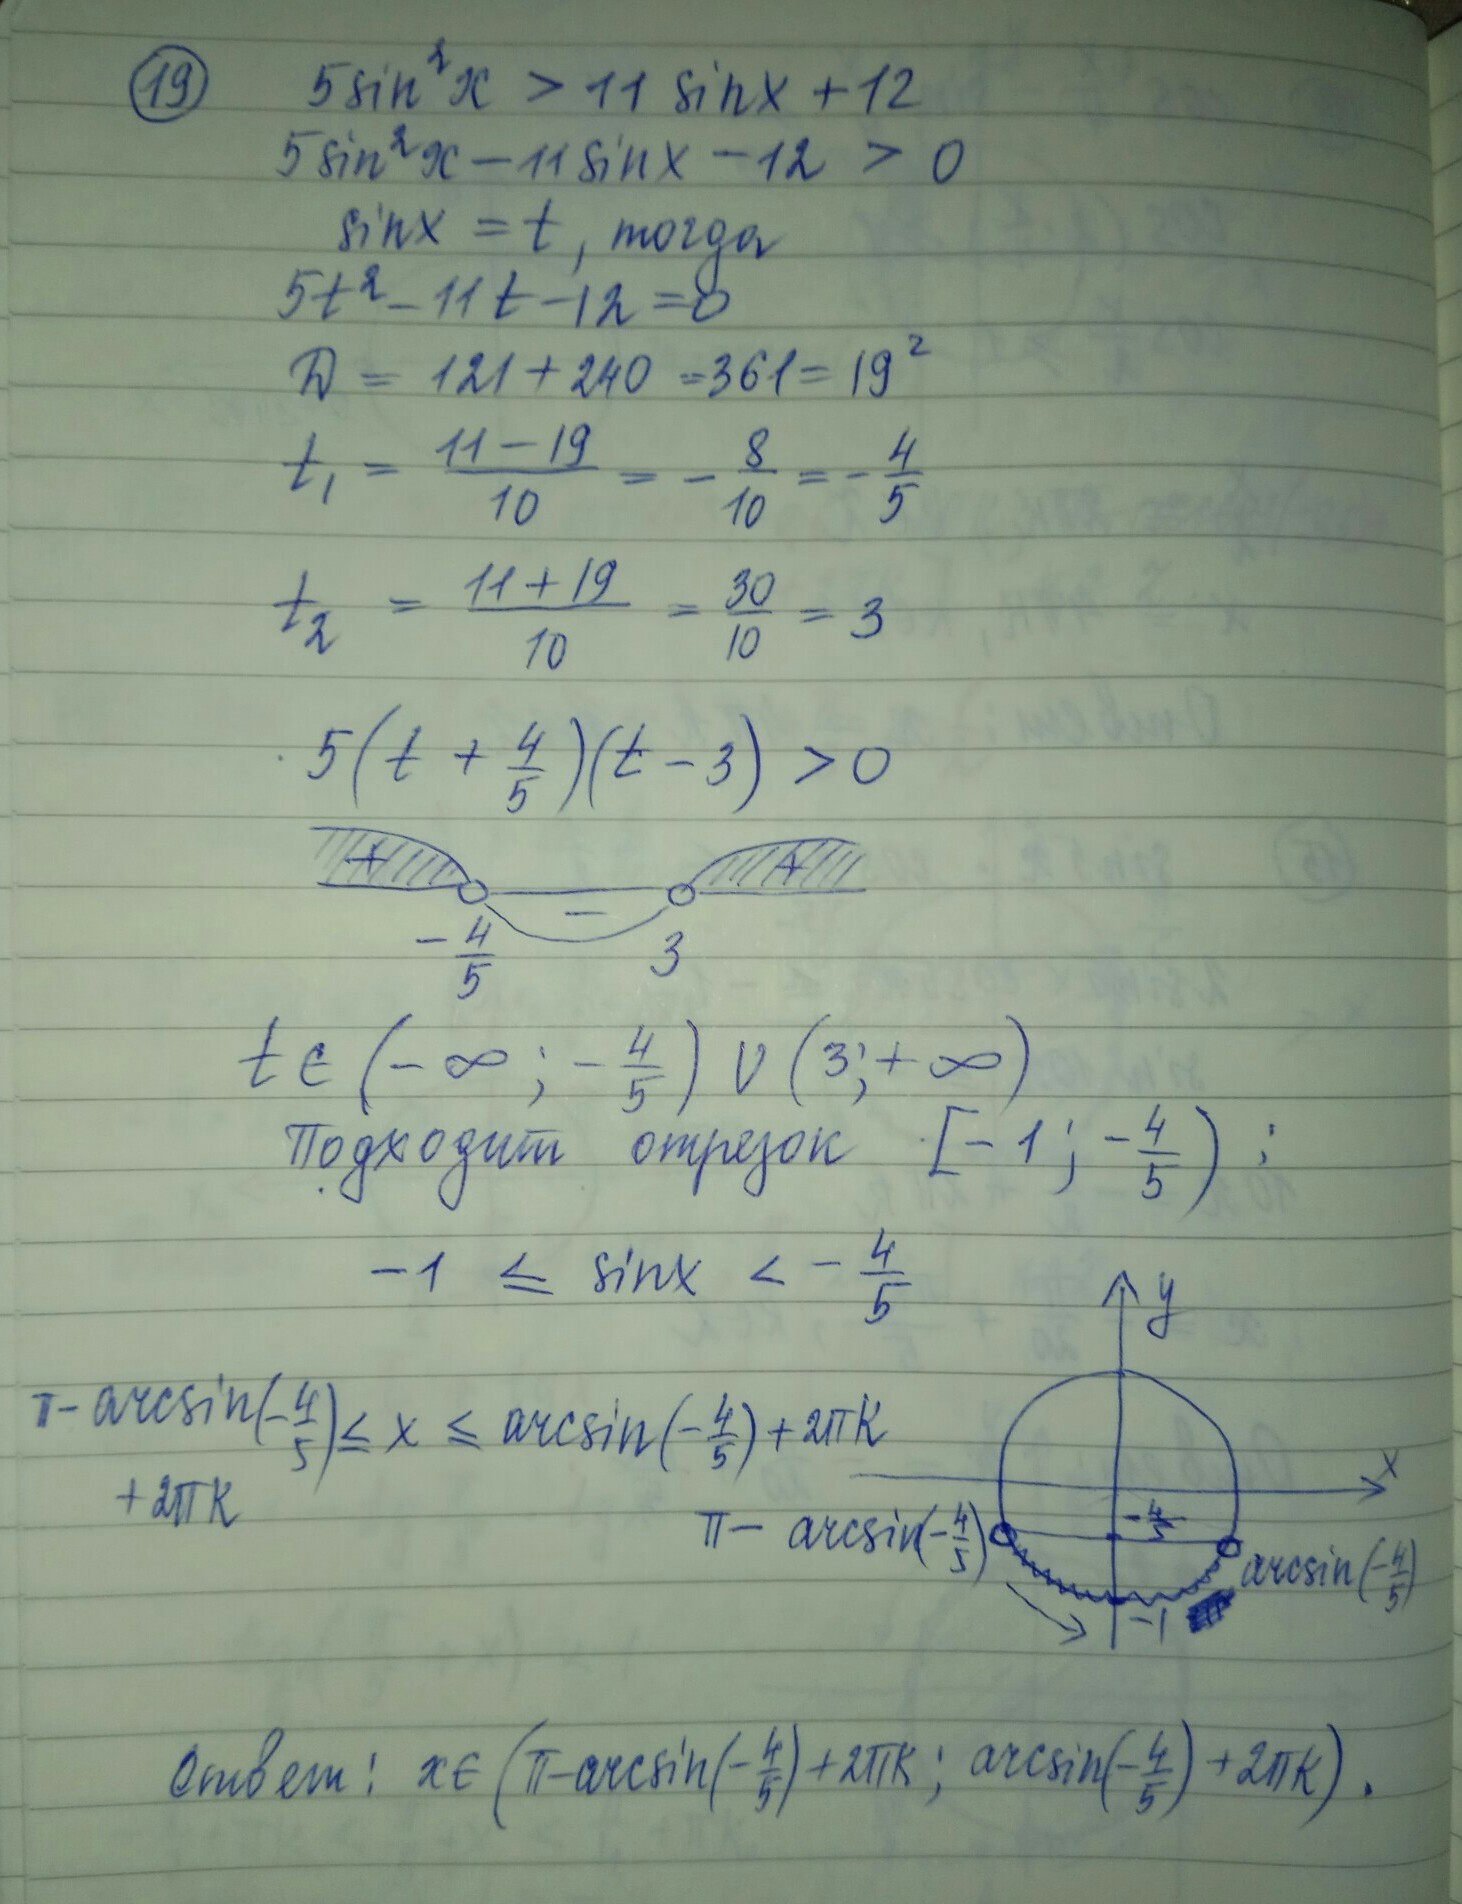 19 5sin²x > 11 sinx + 12
5sin²x − 11 sinx − 12 > 0
sinx = t, тогда
5t² − 11t − 12 = 0
D = 121 + 240 = 361 = 19²
t₁ = (11 − 19)/10 = − 8/10 = − 4/5
t₂ = (11 + 19)/10 = 30/10 = 3
5(t + 4/5)(t − 3) > 0
+ − +
− 4/5 3
t ∈ (− ∞; − 4/5) ∪ (3; + ∞)
Подходит отрезок [− 1; − 4/5);
− 1 ≤ sinx < − 4/5
y
π − arcsin(− 4/5) ≤ x ≤ arcsin(− 4/5) + 2πk
+ 2πk
x
− 4/5
π − arcsin(− 4/5)
arcsin(− 4/5)
−1
Ответ: x ∈ (π − arcsin(− 4/5) + 2πk; arcsin(− 4/5) + 2πk).